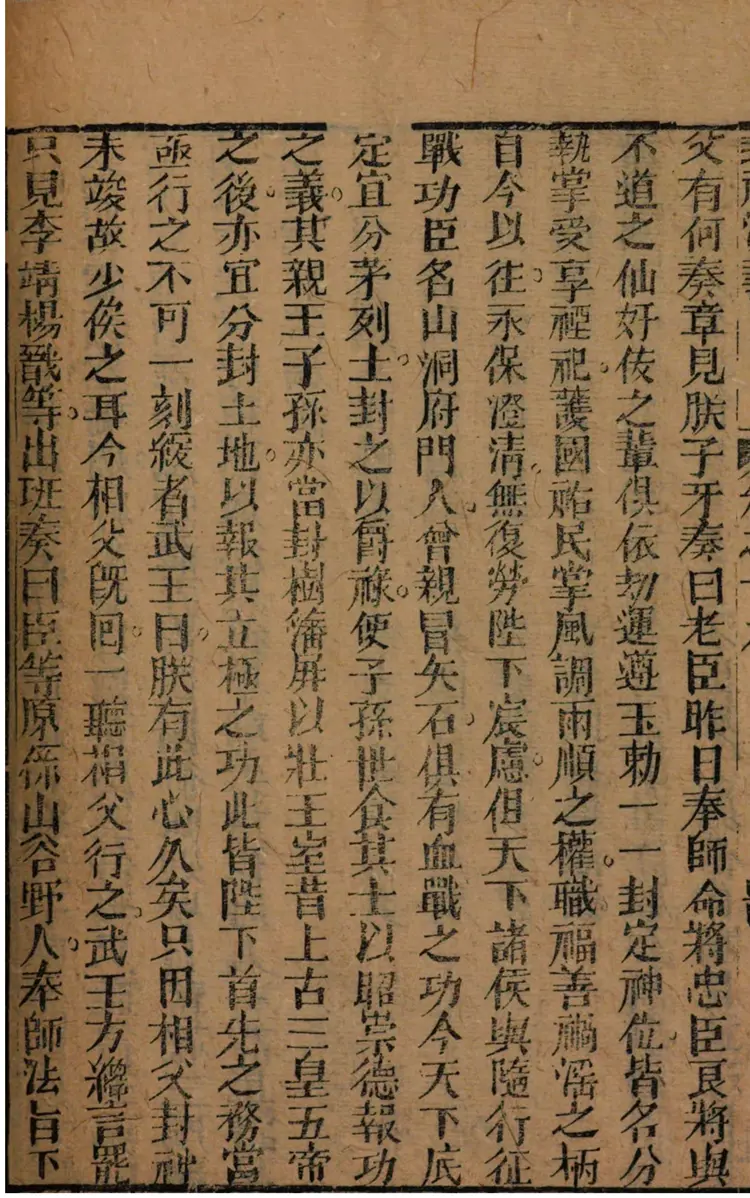 父有何奏章見朕子牙奏曰老臣昨日奉師命將忠臣良將與
不道之仙奸佞之輩俱依劫運遵玉勅一一封定神位皆名分
執掌受享禋祀護國祐民掌風調雨順之權職福善禍淫之柄
自今以往永保澄清無復勞陛下宸慮但天下諸侯與隨行征
戰功臣名山洞府門人曾親冒矢石俱有血戰之功今天下底
定宜分茅列土封之以爵祿使子孫世食其土以昭崇德報功
之義其親王子孫亦當封樹藩屏以壯王室昔上古三皇五帝
之後亦宜分封土地以報其立極之功此皆陛下首先之務當
亟行之不可一刻緩者武王曰朕有此心久矣只因相父封神
未竣故少俟之耳今相父既回一聽相父行之武王方纔言罷
只見李靖楊戩等出班奏曰臣等原係山谷野人奉師法旨下